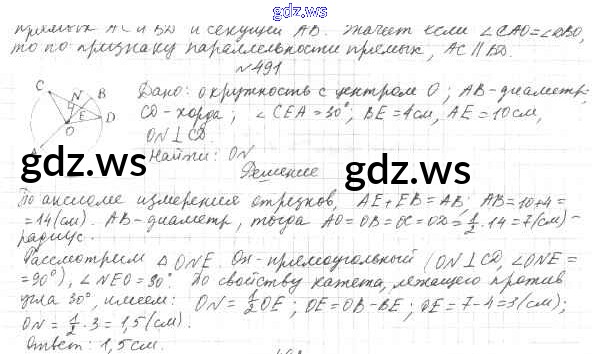 gdz.ws
прямых AC и BD и секущей AB. Значит если ∠CAO=∠DBO,
то по признаку параллельности прямых, AC ∥ BD.
№491
C N B E D O A
Дано: окружность с центром O; AB-диаметр;
CD-хорда; ∠CEA=30°; BE=4см, AE=10см,
ON⊥CD.
Найти: ON
gdz.ws gdz.ws
Решение
По аксиоме измерения отрезков, AE+EB=AB; AB=10+4=
=14(см). AB-диаметр, тогда AO=OB=OC=OD=1/2·14=7(см)-
радиус.
Рассмотрим △ONE. Он-прямоугольный (ON⊥CD, ∠ONE=
=90°), ∠NEO=30°. По свойству катета, лежащего против
угла 30°, имеем: ON=1/2OE; OE=OB-BE; OE=7-4=3(см);
ON=1/2·3=1,5(см).
Ответ: 1,5см.
gdz.ws